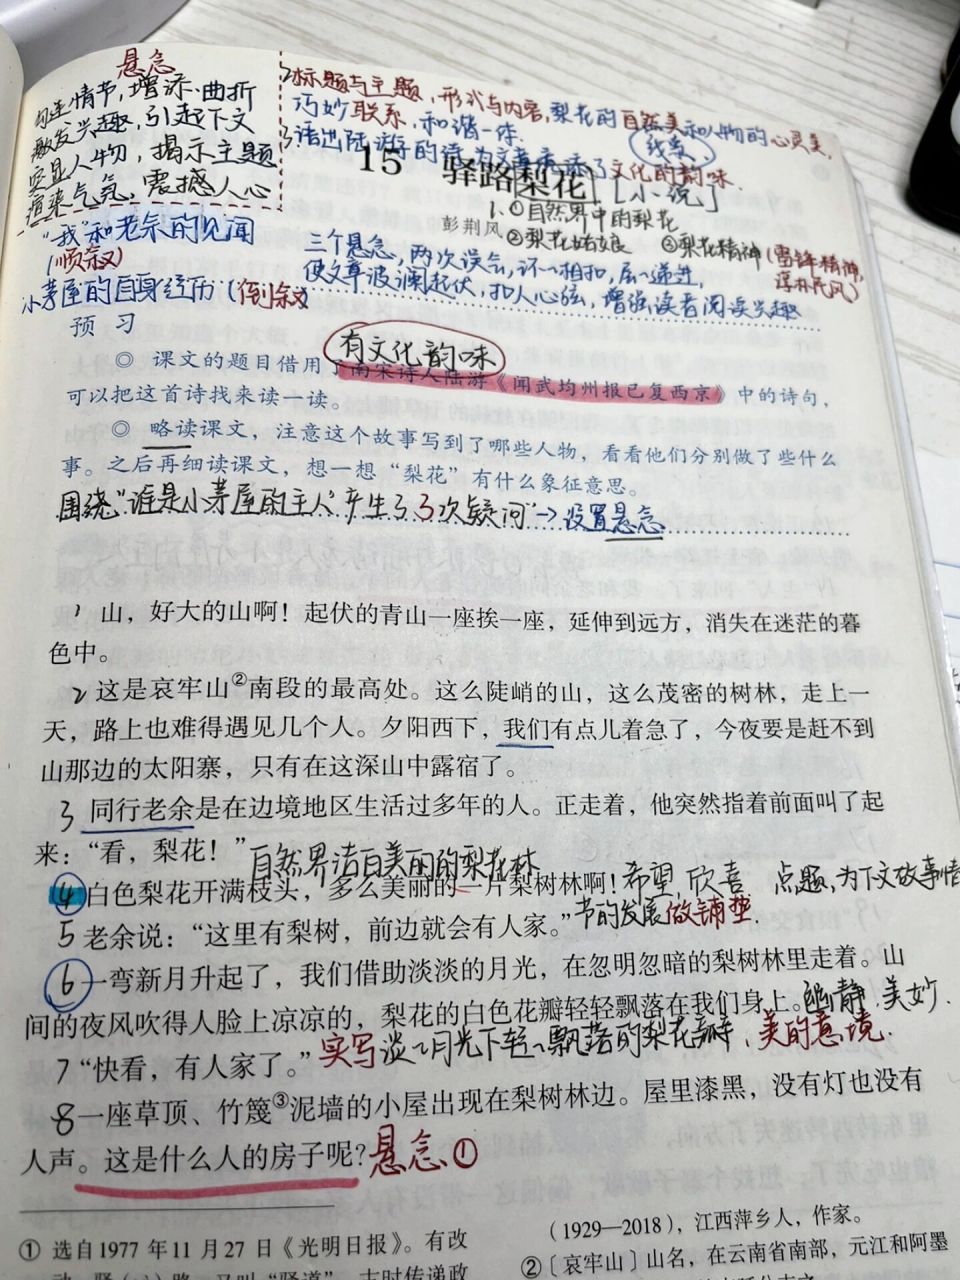 悬念
勾连情节，增添曲折
激发兴趣，引起下文
突显人物，揭示主题
渲染气氛，震撼人心
2标题与主题，形式与内容，梨花的自然美和人物的心灵美，
巧妙联系，和谐一体.
线索
3 陆游的诗，为文章 了文化的韵味.
15 驿路梨花 [小说]
彭荆风
1、①自然界中的梨花
②梨花姑娘 ③梨花精神(雷锋精神，
淳朴民风)
“我”和老余的见闻
(顺叙)
小茅屋的自身经历(倒叙)
三个悬念，两次误会，环环相扣，层层递进，
使文章波澜起伏，扣人心弦，增强读者阅读兴趣
预 习
有文化韵味
◎ 课文的题目借用了南宋诗人陆游《闻武均州报已复西京》中的诗句，
可以把这首诗找来读一读。
◎ 略读课文，注意这个故事写到了哪些人物，看看他们分别做了些什么
事。之后再细读课文，想一想“梨花”有什么象征意思。
围绕“谁是小茅屋的主人”产生了3次疑问→设置悬念
1 山，好大的山啊！起伏的青山一座挨一座，延伸到远方，消失在迷茫的暮
色中。
2 这是哀牢山②南段的最高处。这么陡峭的山，这么茂密的树林，走上一
天，路上也难得遇见几个人。夕阳西下，我们有点儿着急了，今夜要是赶不到
山那边的太阳寨，只有在这深山中露宿了。
3 同行老余是在边境地区生活过多年的人。正走着，他突然指着前面叫了起
来：“看，梨花！”
自然界洁白美丽的梨花林
④ 白色梨花开满枝头，多么美丽的一片梨树林啊！
希望，欣喜 点题，为下文故事情
节的发展做铺垫.
5 老余说：“这里有梨树，前边就会有人家。”
⑥ 一弯新月升起了，我们借助淡淡的月光，在忽明忽暗的梨树林里走着。山
间的夜风吹得人脸上凉凉的，梨花的白色花瓣轻轻飘落在我们身上。
幽静.美妙.
7 “快看，有人家了。”
实写淡淡月光下轻轻飘落的梨花瓣，美的意境.
8 一座草顶、竹篾③泥墙的小屋出现在梨树林边。屋里漆黑，没有灯也没有
人声。这是什么人的房子呢？
悬念①
① 选自1977年11月27日《光明日报》。有改
(1929—2018)，江西萍乡人，作家。
②〔哀牢山〕山名，在云南省南部，元江和阿墨